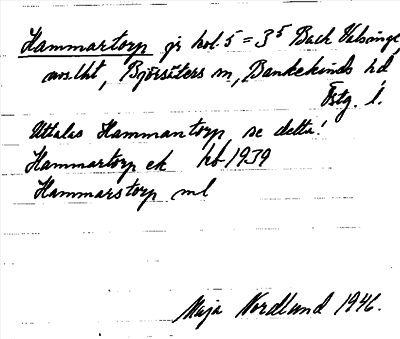 Hammartorp gr kol. 5 = 3⁵ Back Valsinge,
avs. lht, Björsäters sn, Bankekinds hd
Östg. l.
Uttalas Hammantorp, se detta!
Hammartorp ek hb 1939
Hammarstorp ml
Maja Nordlund 1946.